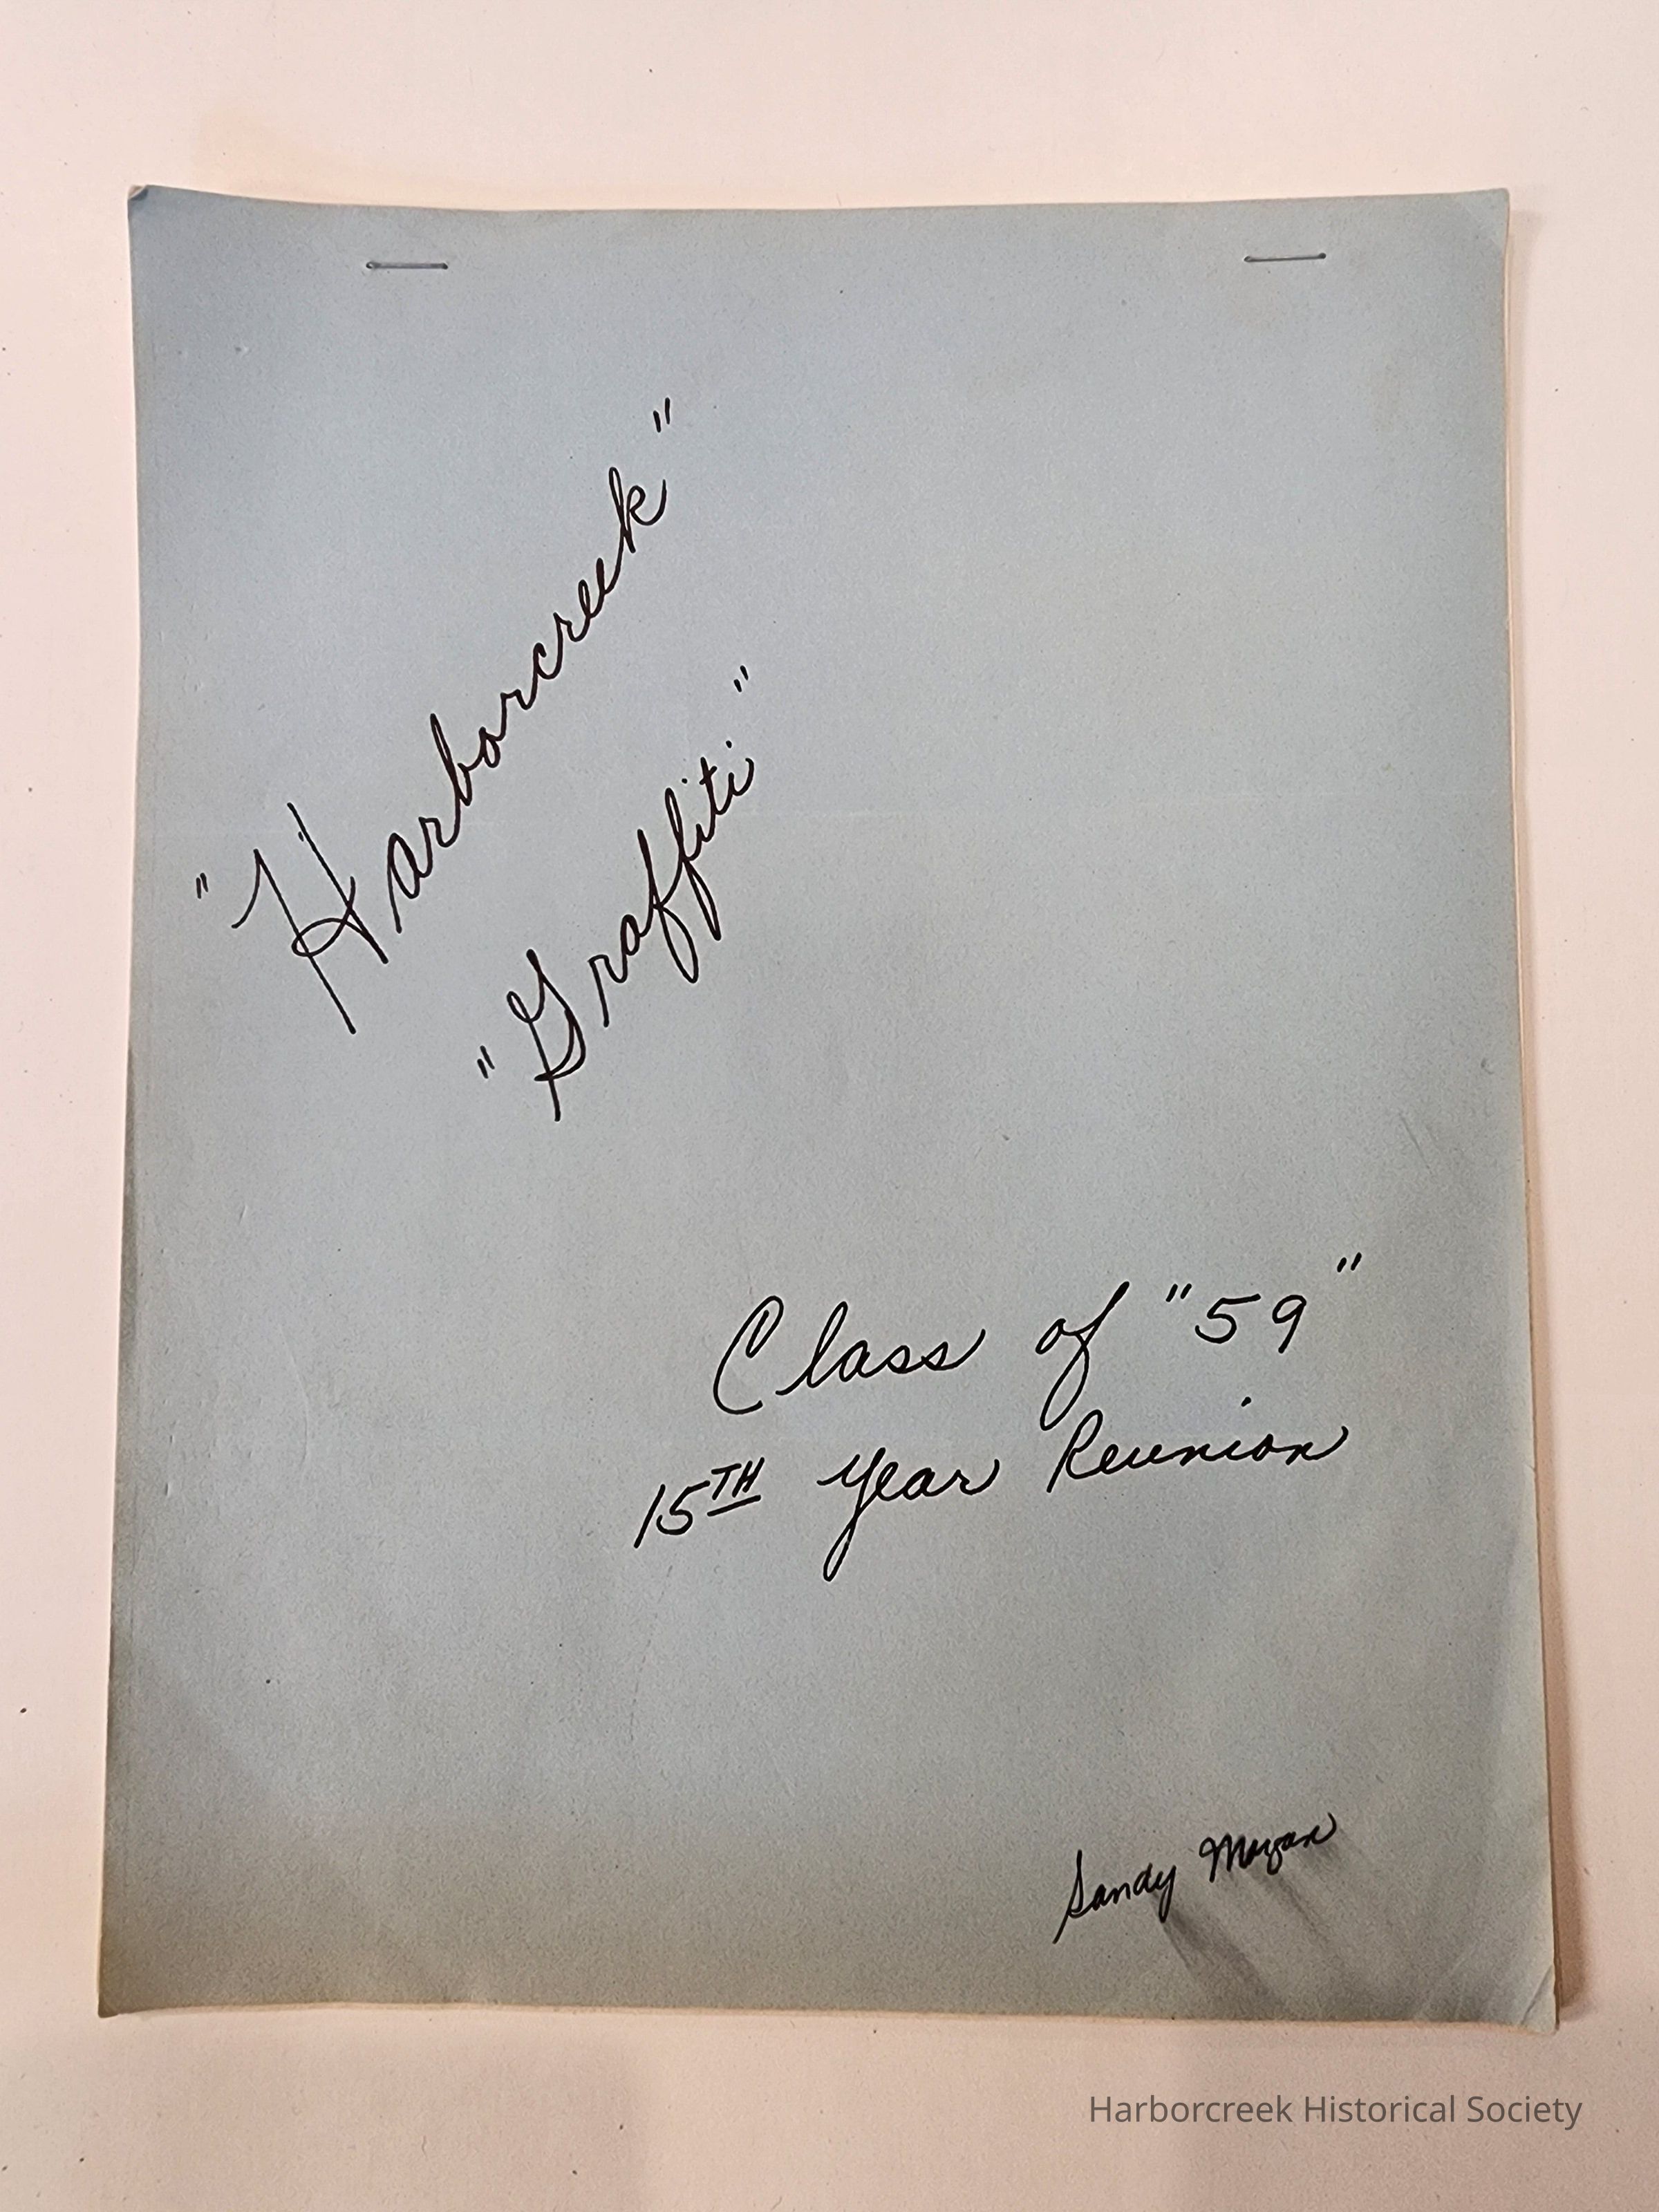 "Harborcreek"
"Graffiti"
Class of "59"
15TH Year Reunion
Sandy Morgan
Harborcreek Historical Society